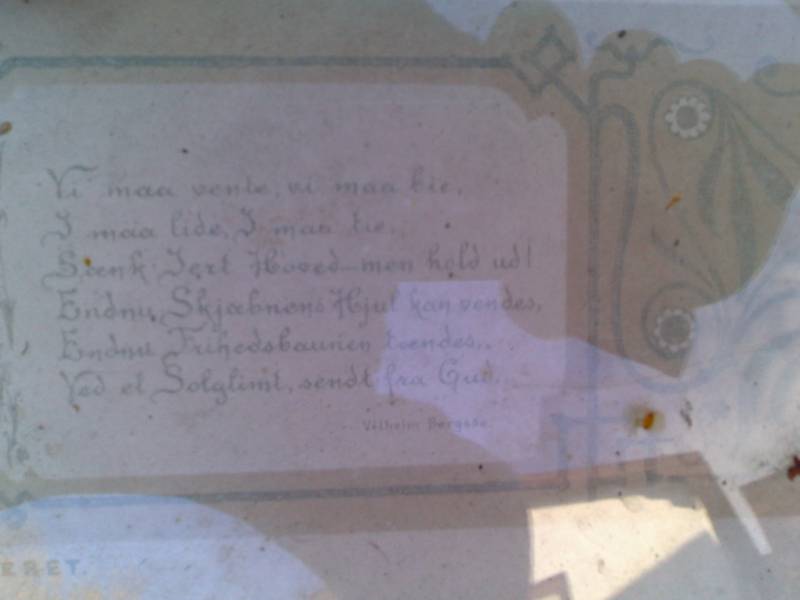 Vi maa vente, vi maa bie,
I maa lide, I maa tie.
Sænk Jert Hoved—men hold ud!
Endnu Skjæbnens Hjul kan vendes,
Endnu Frihedsbaunen tændes,
Ved et Solglimt, sendt fra Gud.
Vilhelm Bergsøe.
ERET.